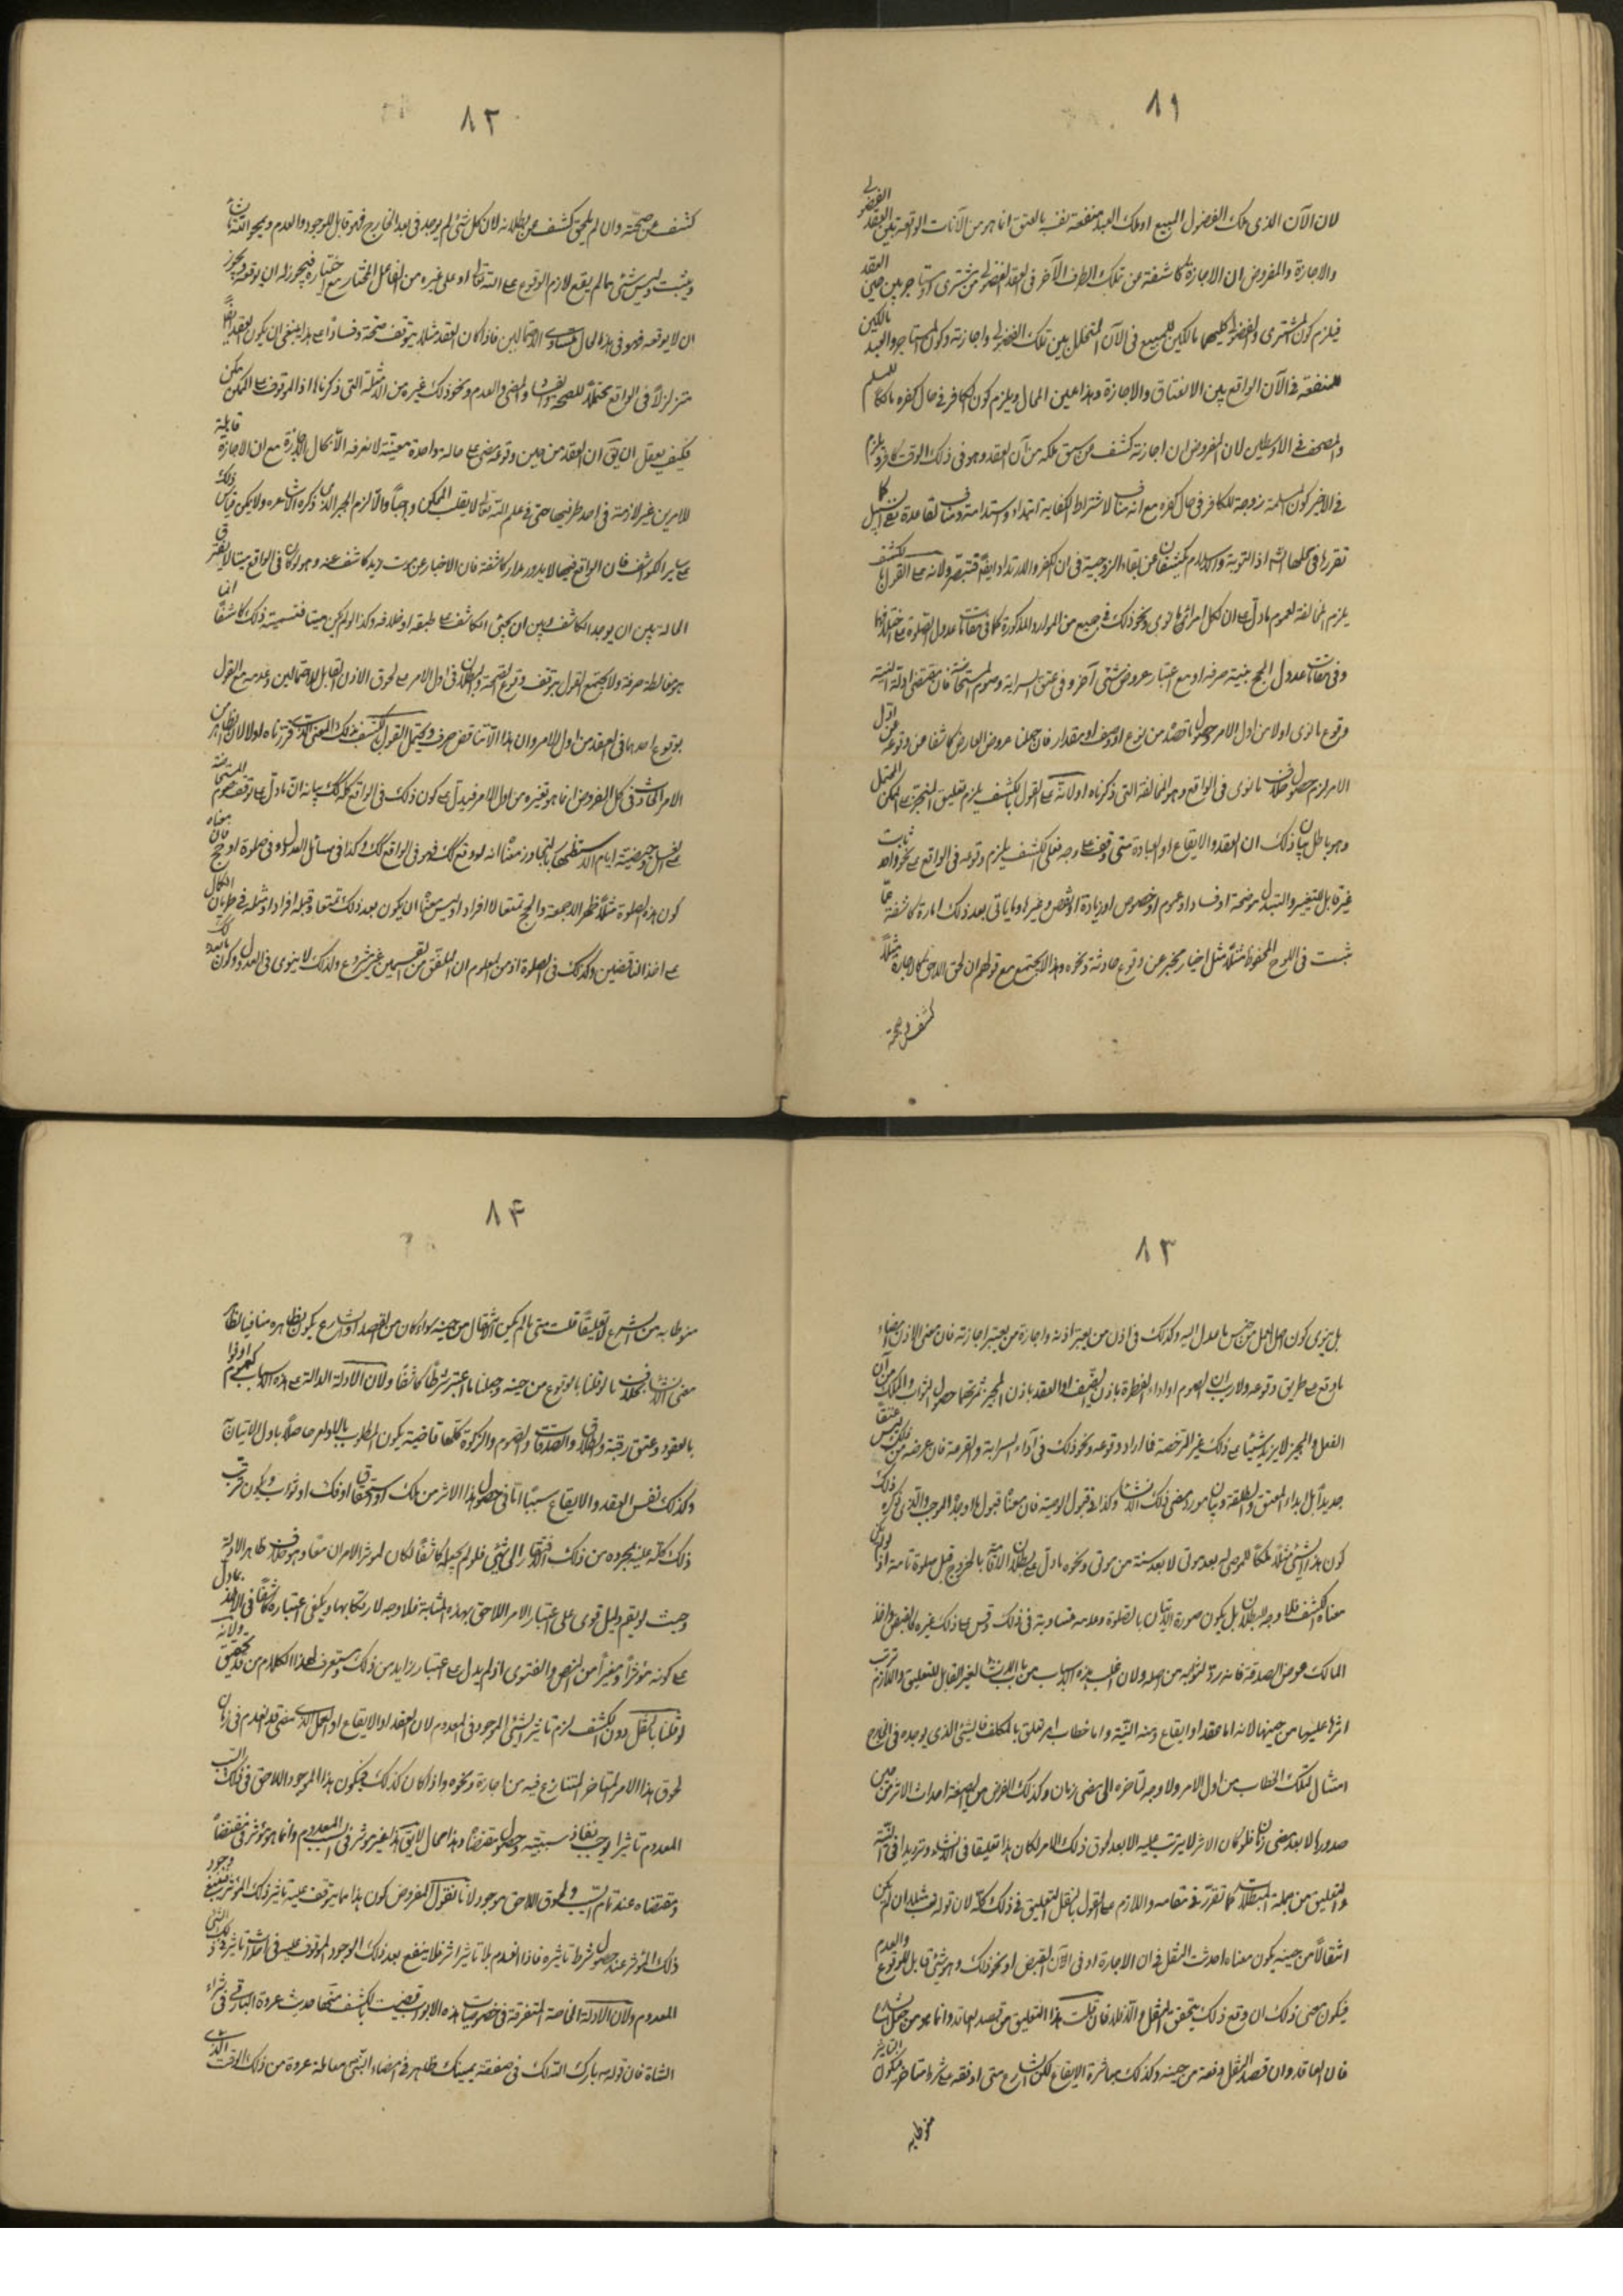 ٨١
لان الآن الذى ملك الفضول المبيع او ملك العبد منفعة نفسه بالعتق انما هو من الآنات الواقعة بين العقد الفضولى
والاجازة والمفروض ان الاجازة كاشفة عن تملك الطرف الآخر فى العقد الفضولى من مشترى او مستاجر من حين العقد
فيلزم كون المشترى والفضولى كليهما مالكين للمبيع فى الآن المتخلل بين تملك الفضولى واجازته وكون المستاجر والعبد مالكين
للمنفعة فى الآن الواقع بين الانعتاق والاجازة وهذا عين المحال ويلزم كون الكافر فى حال كفره مالكا للمسلم
والمصحف فى الاولين لان المفروض ان اجازته كشف عن سبق ملكه من آن العقد وهو فى ذلك الوقت كافر ويلزم
فى الاخير كون المسلمة زوجة للكافر فى حال كفره مع انه مناف لاشتراط الكفاية ابتداء واستدامة ومناف لقاعدة نفى السبيل كما
تقرر فى محلها اذ التوبة والاسلام يكشفان عن بقاء الزوجية فى ان الكفر والارتداد ايضا فتبصر ولانه على القول بالكشف
يلزم مخالفة لعموم ما دل على ان لكل امرئ ما نوى ونحو ذلك فى جميع من الموارد المذكورة كما فى مقامات عدول الصلوة على اختلافها
وفى مقامات عدول الحج بنية صرفة او مع اعتبار عروض شئى آخر وفى عتق السراية وصوم المستحاضة فان مقتضى ادلة النية
وقوع ما نوى اولا من اول الامر حصول ما قصد من نوع او وصف او مقدار فان جعلنا عروض العارض كاشفا عن وقوعه من اول
الامر لزم حصول خلاف ما نوى فى الواقع وهو المخالفة التى ذكرناه اولا لانه على القول بالكشف يلزم تعليق المنجز على الممكن المحتمل
وهو باطل بيان ذلك ان العقد والايقاع او العبادة متى وقف على وجه فعلى الكشف يلزم وقوعه فى الواقع على نحو واحد ثابت
غير قابل للتغيير والتبدل من صحة او فساد او عموم او خصوص او زيادة او نقص وغيرها وما ياتى بعد ذلك امارة كاشفة عما
ثبت فى اللوح المحفوظ مثلا مثل اخبار مخبر عن وقوع حادثة ونحوه وهذا لا يجتمع مع قولهم ان لحق اللاحق كالاجازة مثلا
كشف عن صحة
٨٢
كشف عن صحته وان لم يلحق كشف عن بطلانه لان كل شئى لم يوجد فى بعد الخارج فهو قابل للوجود والعدم ويمحو الله ما يشاء
ويثبت وليس شئى مما لم يقع لازم الوقوع على الله تعالى او على غيره من الفاعل المختار مع اختياره فيجوز له ان يوقعه ويجوز
ان لا يوقعه فهو فى هذه الحال متساوى الاحتمالين فاذا كان العقد مثلا يتوقف صحة وفسادا على هذا ينبغى ان يكون العقد ايضا
متزلزلا فى الواقع محتملا للصحة والفساد والمضى والعدم ونحو ذلك غيره من الامثلة التى ذكرناها اذ الموقوف على الممكن ممكن
فكيف يعقل ان يق ان العقد من حين وقوعه مضى على حالة واحدة معينة لا نعرفه الا بحال الاجازة مع ان الاجازة قابلة
للامرين غير لازمة فى احد طرفيها حتى فى علم الله تعالى لا ينقلب الممكن واجبا والا لزم الجبر الذى ذكره الاشاعرة ولا يمكن قياس ذلك
على ساير الكواشف فان الواقع فيها لا يدور مدار كاشفه فان الاخبار عن موت زيد كاشف عنه وهو لو كان فى الواقع ميتا لا يفترق
الحالة بين ان يوجد الكاشف وبين ان يجئى الكاشف على طبقه او خلافه وكذا لو لم يكن ميتا فتسمية ذلك كاشفا انما
هو مغالطة صرفة ولا يجتمع القول بتوقف وقوع الصحة والبطلان فى اول الامر على لحوق الاذن القابل للاحتمالين وعدمه مع القول
بوقوع احدهما فى العقد من اول الامر وان هذا الا تناقض صرف ويحتمل القول بالكشف ذلك المعنى الذى قررناه اولا لان الظاهر من
الامر الحادث فى كل المفروض انما هو تغيره من اول الامر فيدل على كون ذلك فى الواقع كذلك بيانه ان ما دل على توقف صوم المستحاضة
على الغسل وحيضية ايام الاستظهار بالتجاوز معناه انه لو وقع كذلك فهو فى الواقع كذلك وكذا فى مسائل العدول فى صلوة او حج فان معناه
كون هذه الصلوة مثلا ظهرا لا جمعة والحج تمتعا لا افرادا وليس معناه ان يكون بعد ذلك تمتعا وقبله افرادا ومثله فى طريان الكمال
على اخذ الناقصين وكذلك فى الصلوة اذ من المعلوم ان الملفق من القسمين غير مشروع ولذلك لا ينوى فى العدول وكون ما بعد كذلك
٨٣
بل ينوى كون اصل العمل من جنس ما عدل اليه وكذلك فى اذن من يعتبر اذنه واجازة من يعتبر اجازته فان معنى الاذن امضاء
ما وقع على طريق وقوعه ولا ريب ان الصوم او اداء الفطرة باذن المضيف او العقد باذن المجيز ثمرتها حصول الثواب والملك من آن
الفعل والمجيز لا يزيد شيئا على ذلك غير الرخصة فما اراد وقوعه ونحو ذلك فى اداء السراية والقرعة فان عرضه من ليس عتقا
جديدا بل بداء المعتق والمطلقة وبيان مورد مضى ذلك الانشاء وكذا فى قبول الوصية فان معناه قبول ما اوجده الموجب والذى ذكره ذلك
كون هذا الشئى مثلا ملكا للموصى له بعد موتى لا بعد سنة من موتى ونحوه ما دل على بطلان الاقامة بالخروج قبل صلوة تامة اذ لو كان
معناه الكشف فلا وجه للبطلان بل يكون صورة الاتيان بالصلوة وعدمه متساوية فى ذلك وقس على ذلك غيره كالقبض واخذ
المالك عوض الصدقة فانه رد لوجه من اصله ولان اغلب هذه الاسباب من باب الانشاء الغير القابل للتعليق واللازم ترتب
اثرها عليها من حينها لانه اما عقد او ايقاع ومنه النية واما خطاب امر تعلق بالمكلف فالشئى الذى يوجده فى الخارج
امتثال لتلك الخطاب من اول الامر ولا وجه لتاخره الى مضى زمان وكذلك الغرض من الصيغة احداث الاثر من حين
صدورها لا بعد مضى زمان فلو كان الاثر لا يترتب عليه الا بعد لحوق ذلك الامر لكان هذا تعليقا فى الانشاء وترديدا فى النية
والتعليق من جملة المبطلات كما تقرر فى مقامه واللازم على القول بالنقل التعليق فى ذلك كله لان قوله قد مثلا ان لم يكن
انتقالا من حينه يكون معناه احدثت النقل فى ان الاجازة او فى الآن القبض او نحو ذلك وهو شئى قابل للوقوع والعدم
فيكون معنى ذلك ان وقع ذلك يتحقق النقل والا فلا فان قلت هذا التعليق من قصد العاقد وانما هو من جعل الشارع
فان العاقد وان قصد النقل وقصد من حينه وكذلك مباشرة الايقاع لكن الشارع متى اوقفه على شرط متاخر فيكون التاثير
منوطا به
٨۴
منوطا به من الشرع لا تعليقا قلت متى ما لم يكن الانتقال من حينه سواء كان من القصد او الشارع يكون بظاهره منافيا لظاهر
معنى الانشاء بخلاف ما لو قلنا بالوقوع من حينه وجعلنا ما اعتبر شرطا كاشفا ولان الادلة الدالة على هذه الاسباب كعموم اوفوا
بالعقود وعتق رقبة والطلاق والصدقات والصوم والزكوة كلها قاضية يكون المطلوب بالاوامر حاصلا باول الاتيان
وكذلك نفس العقد والايقاع سببا تاما فى حصول هذا الاثر من ملك او استحقاق او فك او ثواب ويكون ترتب
ذلك كله عليه بمجرده من ذلك افتقار الى شئى فلو لم يجعله كاشفا لكان المؤثر الامران معا وهو خلاف ظاهر الادلة
وحيث لم يقم دليل قوى على اعتبار الامر اللاحق بهذه المثابة فلا وجه لارتكابها ويكفى اعتباره كاشفا فى الاخذ بما دل
على كونه مؤثرا ومغيرا من النص والفتوى اذ لم يدل على اعتبار زايد من ذلك وستعرف لهذا الكلام من تحقيق ولانه
لو قلنا بالنقل دون الكشف لزم تاثير الشئى الموجود فى المعدوم لان العقد او الايقاع او العمل الذى مضى قد انعدم فى زمان
لحوق هذا الامر المتاخر المتنازع فيه من اجازة ونحوه واذا كان كذلك فيكون هذا الموجود اللاحق فى ذلك السبب
المعدوم تاثيرا يوجب نفاذ سببيته وحصول مقتضاه وهذا محال لا يق هذا غير مؤثر فى السبب المعدوم وانما هو مؤثر فى مقتضاه
ومقتضاه عند تمام السبب ولحوق اللاحق موجود لانا نقول المفروض كون هذا مما يتوقف عليه تاثير ذلك المؤثر فينبغى وجود
ذلك المؤثر عند حصول شرط تاثيره فاذا انعدم بلا تاثير اثر فلا ينفع بعد ذلك الوجود الموقوف عليه فى احداث تاثير فى ذلك الشئى
المعدوم ولان الادلة الخاصة المتفرقة فى خصوصيات هذه الابواب قضيت بالكشف منها حديث عروة البارقى فى شراء
الشاة فان قوله بارك الله لك فى صفقة يمينك ظاهر فى امضاء النبى معاملة عروة من ذلك الوقت الذى